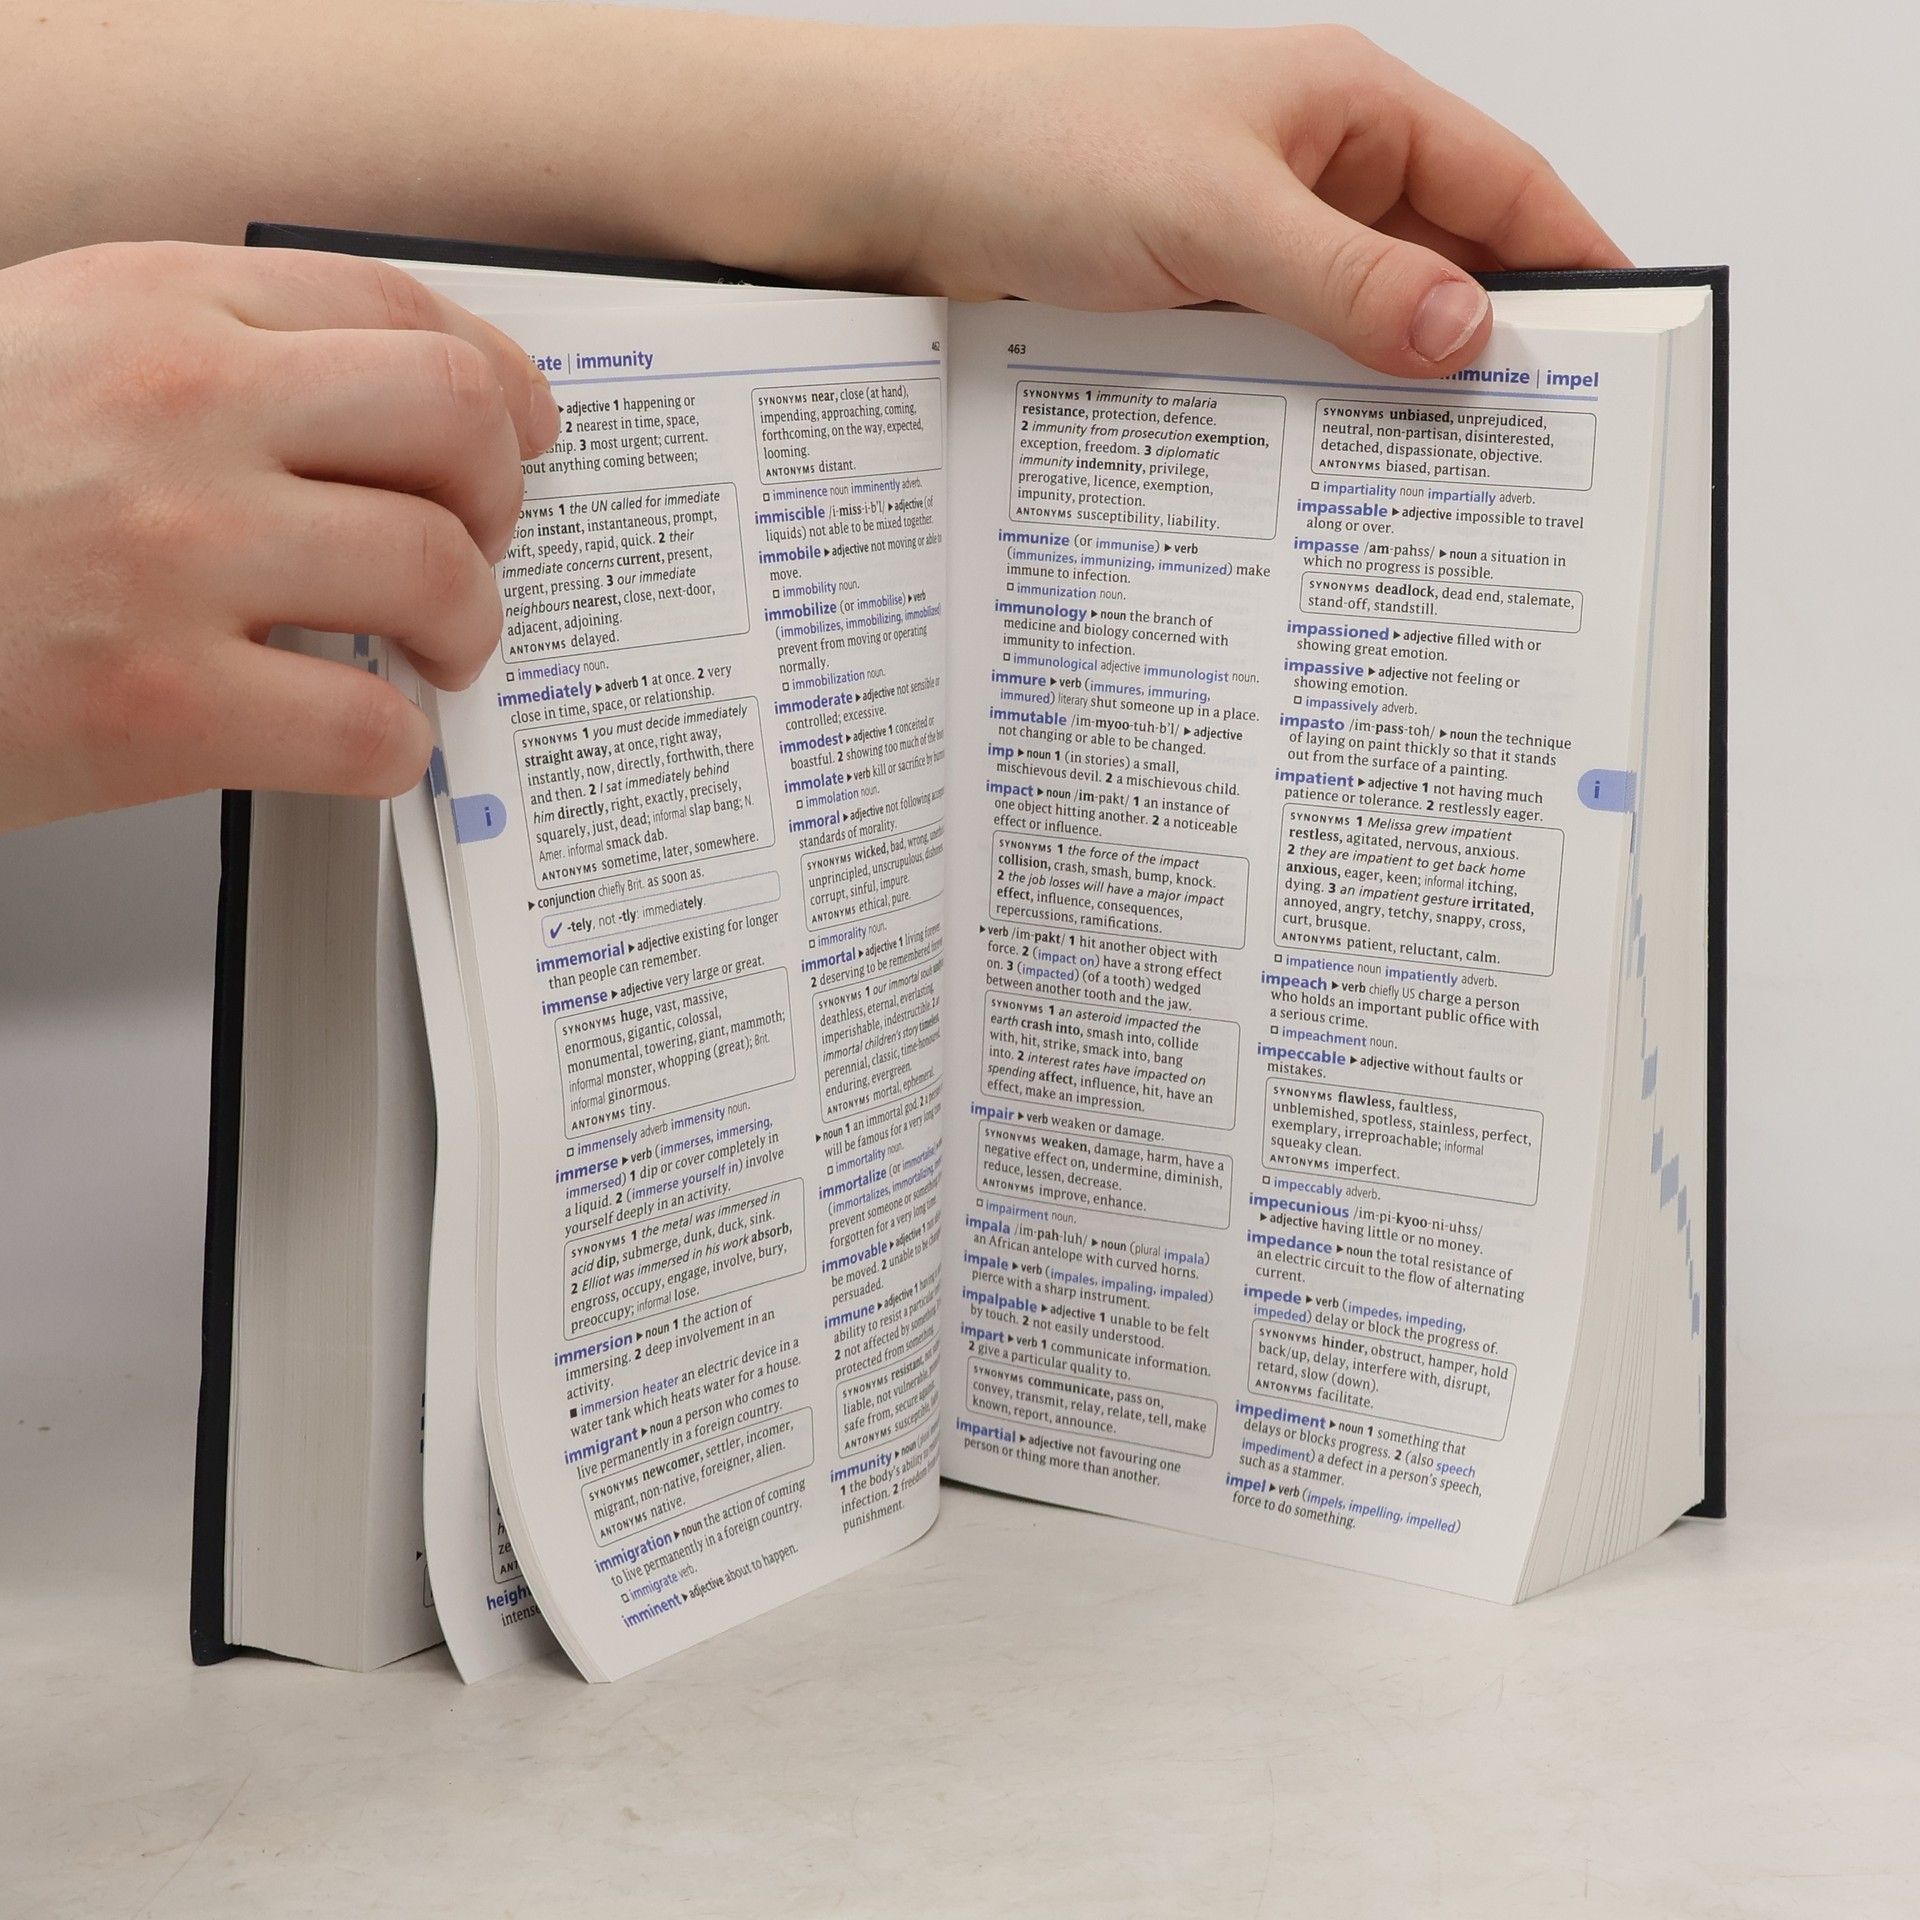 immunity
462
adjective 1 happening or
2 nearest in time, space,
3 most urgent; current.
anything coming between;
1 the UN called for immediate
instant, instantaneous, prompt,
swift, speedy, rapid, quick. 2 their
immediate concerns current, present,
urgent, pressing. 3 our immediate
neighbours nearest, close, next-door,
adjacent, adjoining.
ANTONYMS delayed.
immediacy noun.
immediately ▶ adverb 1 at once. 2 very
close in time, space, or relationship.
SYNONYMS 1 you must decide immediately
straight away, at once, right away,
instantly, now, directly, forthwith, there
and then. 2 I sat immediately behind
him directly, right, exactly, precisely,
squarely, just, dead; informal slap bang; N.
Amer. informal smack dab.
ANTONYMS sometime, later, somewhere.
▶ conjunction chiefly Brit. as soon as.
✓ -tely, not -tly: immediately.
immemorial ▶ adjective existing for longer
than people can remember.
immense ▶ adjective very large or great.
SYNONYMS huge, vast, massive,
enormous, gigantic, colossal,
monumental, towering, giant, mammoth;
informal monster, whopping (great); Brit.
informal ginormous.
ANTONYMS tiny.
immensely adverb immensity noun.
immerse ▶ verb (immerses, immersing,
immersed) 1 dip or cover completely in
a liquid. 2 (immerse yourself in) involve
yourself deeply in an activity.
SYNONYMS 1 the metal was immersed in
acid dip, submerge, dunk, duck, sink.
2 Elliot was immersed in his work absorb,
engross, occupy, engage, involve, bury,
preoccupy; informal lose.
immersion ▶ noun 1 the action of
immersing. 2 deep involvement in an
activity.
■ immersion heater an electric device in a
water tank which heats water for a house.
immigrant ▶ noun a person who comes to
live permanently in a foreign country.
SYNONYMS newcomer, settler, incomer,
migrant, non-native, foreigner, alien.
ANTONYMS native.
immigration ▶ noun the action of coming
to live permanently in a foreign country.
immigrate verb.
imminent ▶ adjective about to happen.
SYNONYMS near, close (at hand),
impending, approaching, coming,
forthcoming, on the way, expected,
looming.
ANTONYMS distant.
imminence noun imminently adverb.
immiscible /i-miss-i-b'l/ ▶ adjective (of
liquids) not able to be mixed together.
immobile ▶ adjective not moving or able to
move.
immobility noun.
immobilize (or immobilise) ▶ verb
(immobilizes, immobilizing, immobilized)
prevent from moving or operating
normally.
immobilization noun.
immoderate ▶ adjective not sensible or
controlled; excessive.
immodest ▶ adjective 1 conceited or
boastful. 2 showing too much of the
immolate ▶ verb kill or sacrifice by
immolation noun.
immoral ▶ adjective not following
standards of morality.
SYNONYMS wicked, bad, wrong,
unprincipled, unscrupulous,
corrupt, sinful, impure.
ANTONYMS ethical, pure.
immorality noun.
immortal ▶ adjective 1 living forever.
2 deserving to be remembered
SYNONYMS 1 our immortal souls
deathless, eternal, everlasting,
imperishable, indestructible. 2
immortal children's story timeless,
perennial, classic, time-honoured,
enduring, evergreen.
ANTONYMS mortal, ephemeral.
▶ noun 1 an immortal god. 2 a
will be famous for a very long
immortality noun.
immortalize (or immortalise)
(immortalizes, immortalizing,
prevent someone or something
forgotten for a very long time.
immovable ▶ adjective 1 not
be moved. 2 unable to be
persuaded.
immune ▶ adjective 1 having
ability to resist a particular
2 not affected by something.
protected from something.
SYNONYMS resistant,
liable, not vulnerable,
safe from, secure against,
ANTONYMS susceptible,
immunity ▶ noun
1 the body's ability
infection. 2 freedom
punishment.
i
463
immunize | impel
SYNONYMS 1 immunity to malaria
resistance, protection, defence.
2 immunity from prosecution exemption,
exception, freedom. 3 diplomatic
immunity indemnity, privilege,
prerogative, licence, exemption,
impunity, protection.
ANTONYMS susceptibility, liability.
immunize (or immunise) ▶ verb
(immunizes, immunizing, immunized) make
immune to infection.
immunization noun.
immunology ▶ noun the branch of
medicine and biology concerned with
immunity to infection.
immunological adjective immunologist noun.
immure ▶ verb (immures, immuring,
immured) literary shut someone up in a place.
immutable /im-myoo-tuh-b'l/ ▶ adjective
not changing or able to be changed.
imp ▶ noun 1 (in stories) a small,
mischievous devil. 2 a mischievous child.
impact ▶ noun /im-pakt/ 1 an instance of
one object hitting another. 2 a noticeable
effect or influence.
SYNONYMS 1 the force of the impact
collision, crash, smash, bump, knock.
2 the job losses will have a major impact
effect, influence, consequences,
repercussions, ramifications.
▶ verb /im-pakt/ 1 hit another object with
force. 2 (impact on) have a strong effect
on. 3 (impacted) (of a tooth) wedged
between another tooth and the jaw.
SYNONYMS 1 an asteroid impacted the
earth crash into, smash into, collide
with, hit, strike, smack into, bang
into. 2 interest rates have impacted on
spending affect, influence, hit, have an
effect, make an impression.
impair ▶ verb weaken or damage.
SYNONYMS weaken, damage, harm, have a
negative effect on, undermine, diminish,
reduce, lessen, decrease.
ANTONYMS improve, enhance.
impairment noun.
impala /im-pah-luh/ ▶ noun (plural impala)
an African antelope with curved horns.
impale ▶ verb (impales, impaling, impaled)
pierce with a sharp instrument.
impalpable ▶ adjective 1 unable to be felt
by touch. 2 not easily understood.
impart ▶ verb 1 communicate information.
2 give a particular quality to.
SYNONYMS communicate, pass on,
convey, transmit, relay, relate, tell, make
known, report, announce.
impartial ▶ adjective not favouring one
person or thing more than another.
SYNONYMS unbiased, unprejudiced,
neutral, non-partisan, disinterested,
detached, dispassionate, objective.
ANTONYMS biased, partisan.
impartiality noun impartially adverb.
impassable ▶ adjective impossible to travel
along or over.
impasse /am-pahss/ ▶ noun a situation in
which no progress is possible.
SYNONYMS deadlock, dead end, stalemate,
stand-off, standstill.
impassioned ▶ adjective filled with or
showing great emotion.
impassive ▶ adjective not feeling or
showing emotion.
impassively adverb.
impasto /im-pass-toh/ ▶ noun the technique
of laying on paint thickly so that it stands
out from the surface of a painting.
impatient ▶ adjective 1 not having much
patience or tolerance. 2 restlessly eager.
SYNONYMS 1 Melissa grew impatient
restless, agitated, nervous, anxious.
2 they are impatient to get back home
anxious, eager, keen; informal itching,
dying. 3 an impatient gesture irritated,
annoyed, angry, tetchy, snappy, cross,
curt, brusque.
ANTONYMS patient, reluctant, calm.
impatience noun impatiently adverb.
impeach ▶ verb chiefly US charge a person
who holds an important public office with
a serious crime.
impeachment noun.
impeccable ▶ adjective without faults or
mistakes.
SYNONYMS flawless, faultless,
unblemished, spotless, stainless, perfect,
exemplary, irreproachable; informal
squeaky clean.
ANTONYMS imperfect.
impeccably adverb.
impecunious /im-pi-kyoo-ni-uhss/
▶ adjective having little or no money.
impedance ▶ noun the total resistance of
an electric circuit to the flow of alternating
current.
impede ▶ verb (impedes, impeding,
impeded) delay or block the progress of.
SYNONYMS hinder, obstruct, hamper, hold
back/up, delay, interfere with, disrupt,
retard, slow (down).
ANTONYMS facilitate.
impediment ▶ noun 1 something that
delays or blocks progress. 2 (also speech
impediment) a defect in a person's speech,
such as a stammer.
impel ▶ verb (impels, impelling, impelled)
force to do something.
i